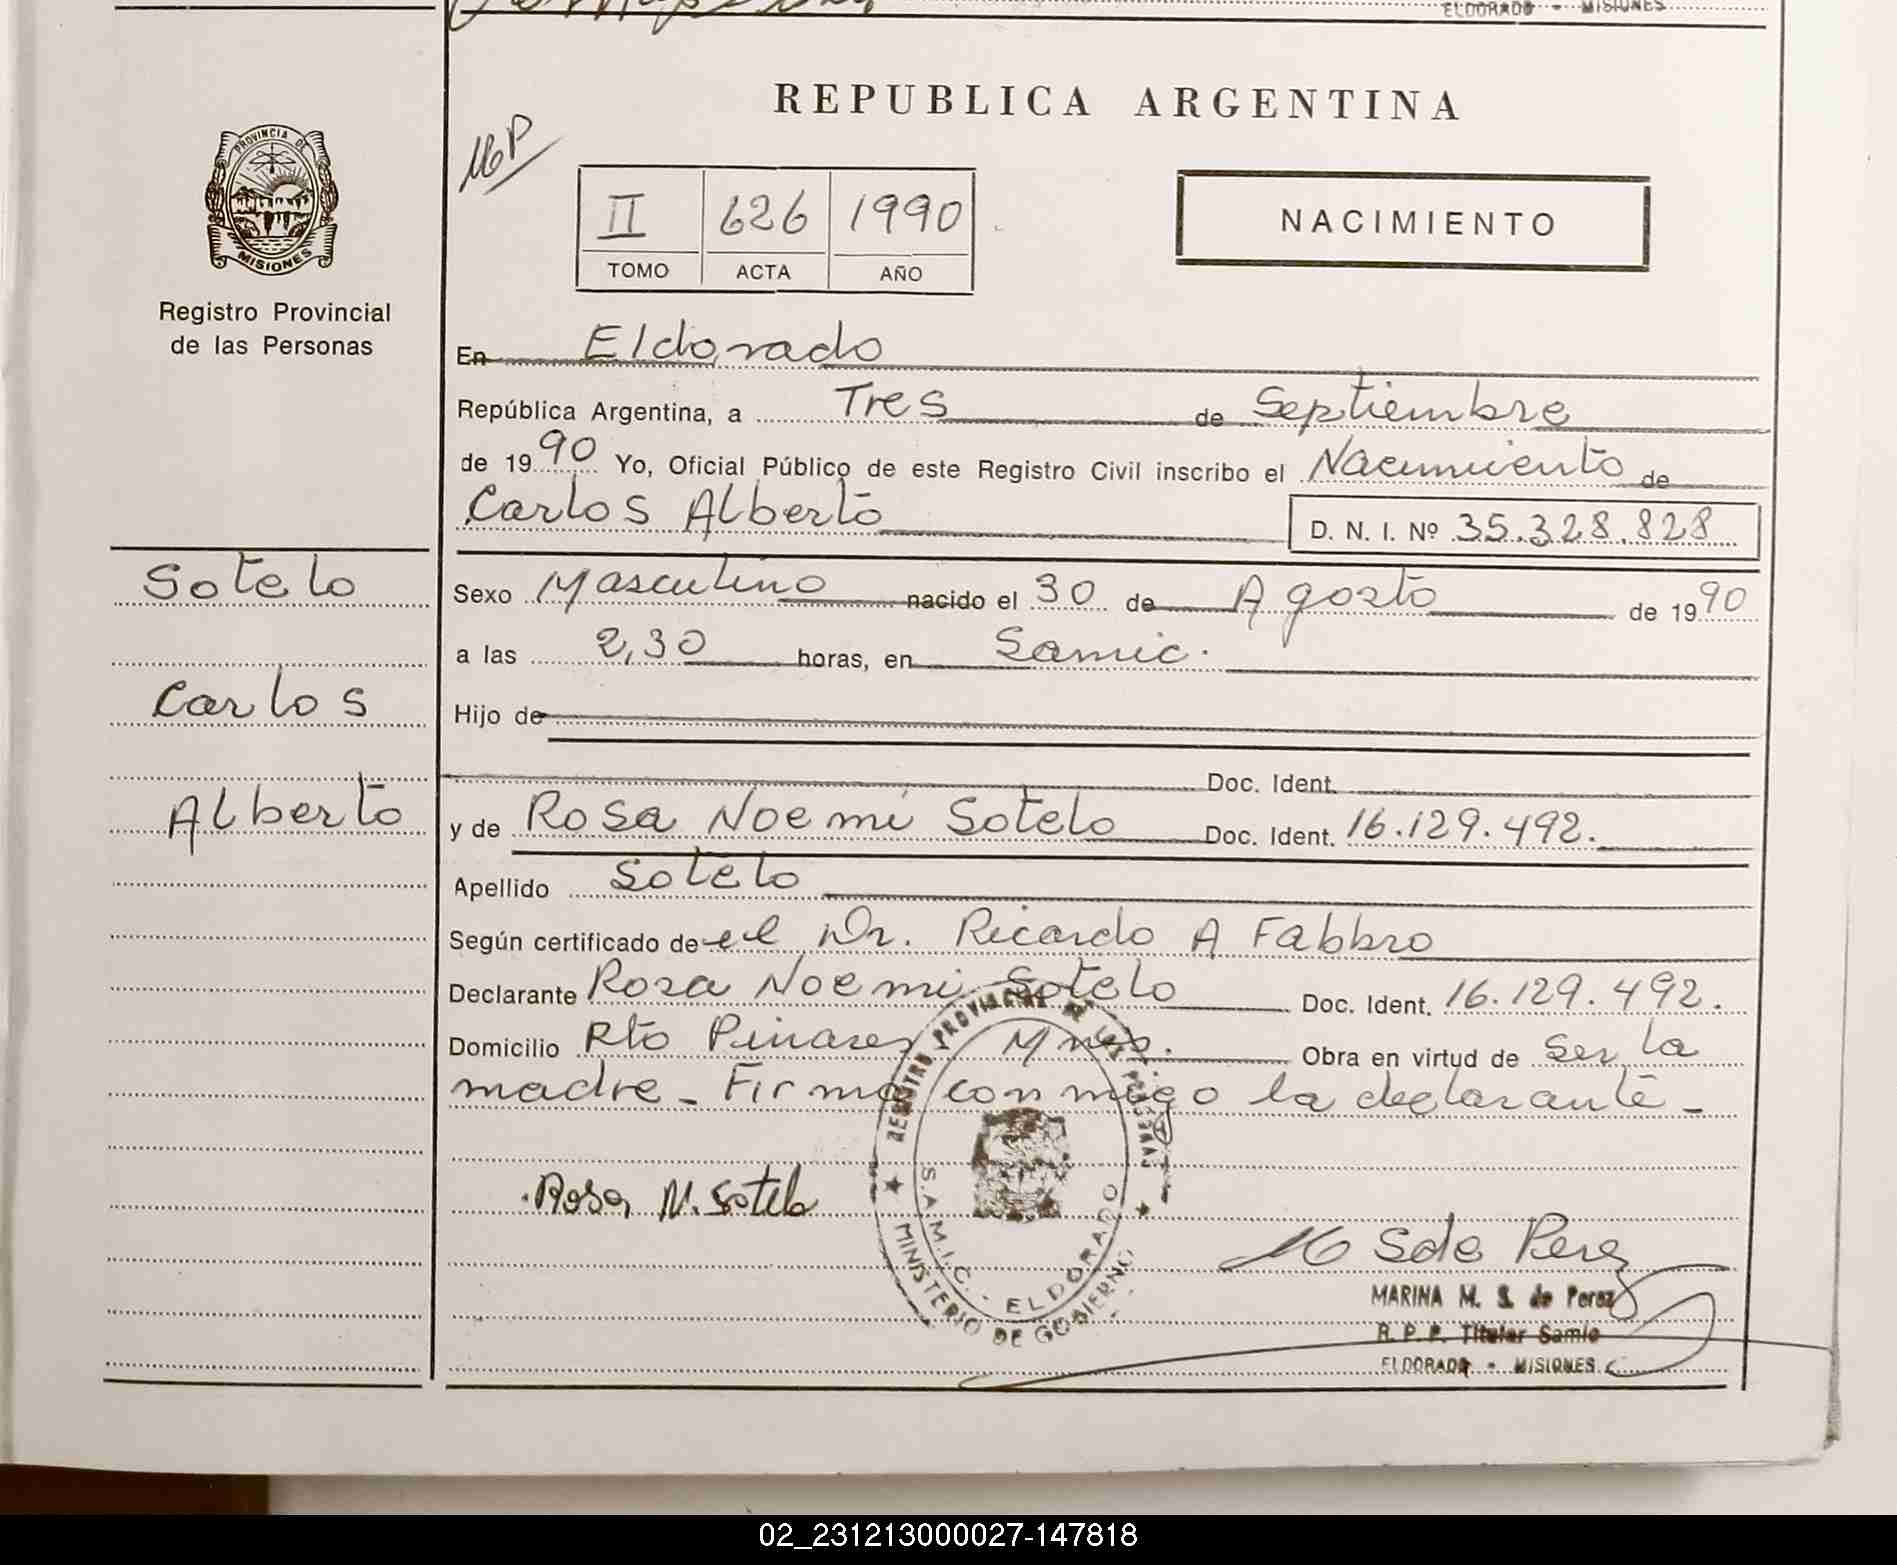 ELDORADO - MISIONES
REPUBLICA ARGENTINA
PROVINCIA DE
MISIONES
Registro Provincial
de las Personas
II 626 1990
TOMO ACTA AÑO
NACIMIENTO
En Eldorado
República Argentina, a Tres de Septiembre
de 1990 Yo, Oficial Público de este Registro Civil inscribo el Nacimiento de
Carlos Alberto D. N. I. Nº 35.328.828
Sotelo
Carlos
Alberto
Sexo Masculino nacido el 30 de Agosto de 1990
a las 2,30 horas, en Samic.
Hijo de
Doc. Ident.
y de Rosa Noemi Sotelo Doc. Ident. 16.129.492.
Apellido Sotelo
Según certificado de el Dr. Ricardo A Fabbro
Declarante Rosa Noemi Sotelo Doc. Ident. 16.129.492.
Domicilio Rto Pinares Mnes. Obra en virtud de Ser la
madre - Firma conmigo la declarante -
REGISTRO PROVINCIAL DE LAS PERSONAS
S.A.M.I.C. - ELDORADO
MINISTERIO DE GOBIERNO
Rosa N. Sotelo
M S de Perez
MARINA M. S. de Perez
R. P. P. Titular Samic
ELDORADO - MISIONES
02_231213000027-147818